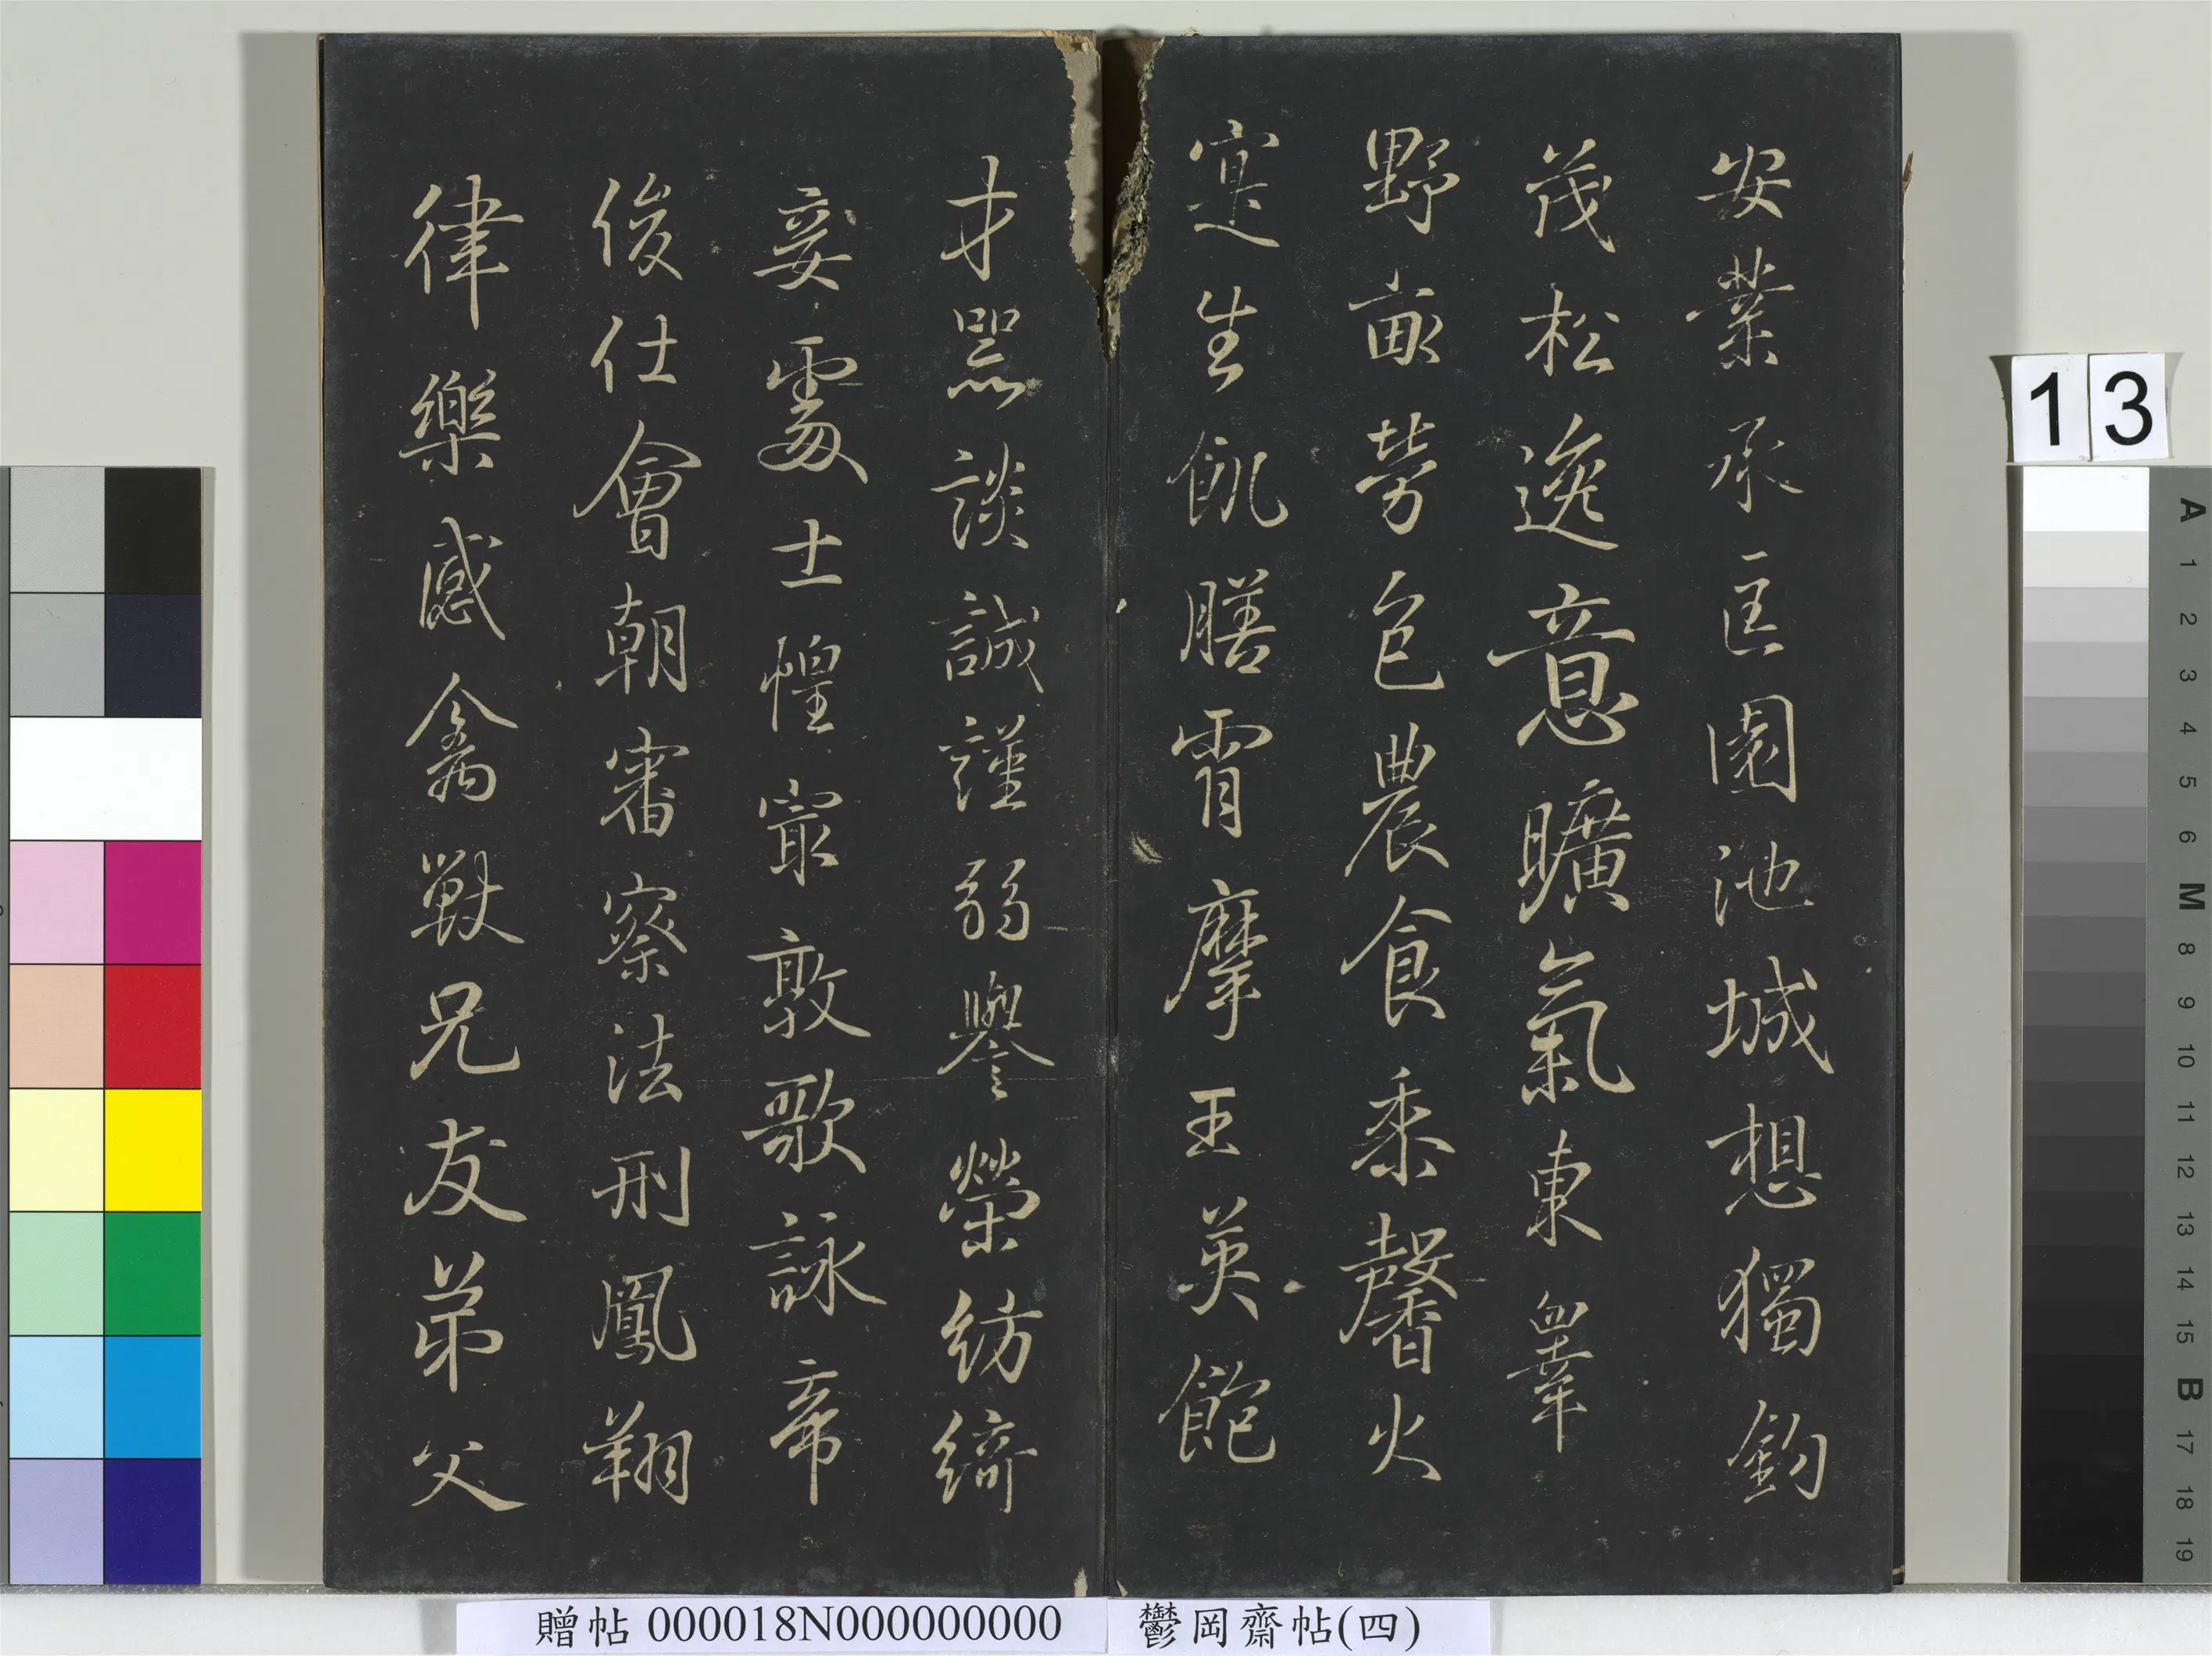 安業承匡園池城想獨釣
茂松逸意曠氣東皋
野畝勞色農食黍馨火
寔生飢膳宵摩王英飽
才器談誠謹弱譽榮紡綺
妾處士惶寂敦歌詠帝
俊仕會朝審察法刑鳳翔
律樂感禽獸兄友弟父
13
A 1 2 3 4 5 6 M 8 9 10 11 12 13 14 15 B 17 18 19
贈帖 000018N000000000
鬱岡齋帖(四)